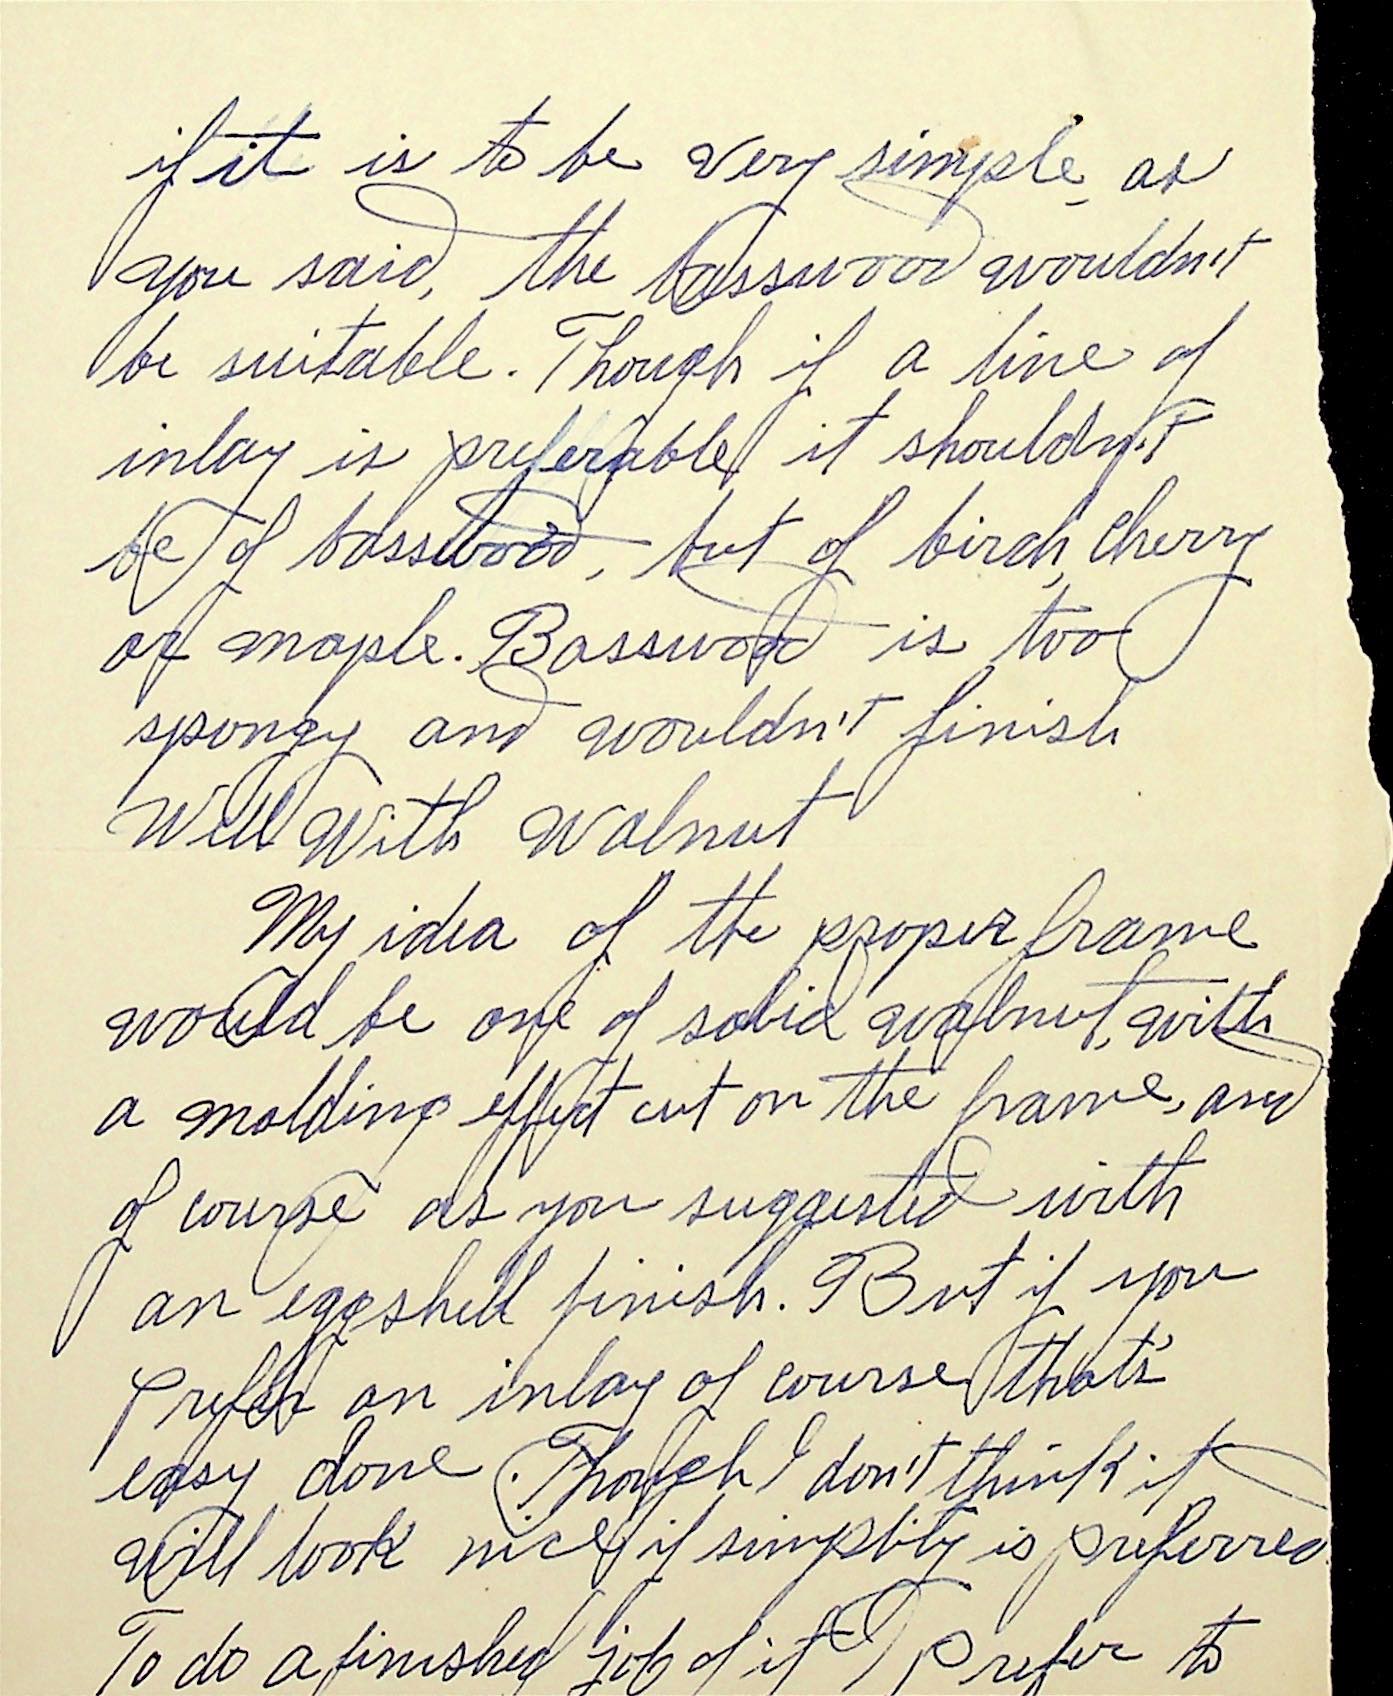 if it is to be very simple, as
you said, the basswood wouldn't
be suitable. Though if a line of
inlay is preferable it shouldn't
be of basswood, but of birch, cherry
or maple. Basswood is too
spongy and wouldn't finish
well with walnut
My idea of the proper frame
would be one of solid walnut, with
a molding effect cut on the frame, and
of course as you suggested with
an eggshell finish. But if you
prefer an inlay of course that's
easy done. Though I don't think it
will look nice if simplity is preferred.
To do a finished job of it I prefer to